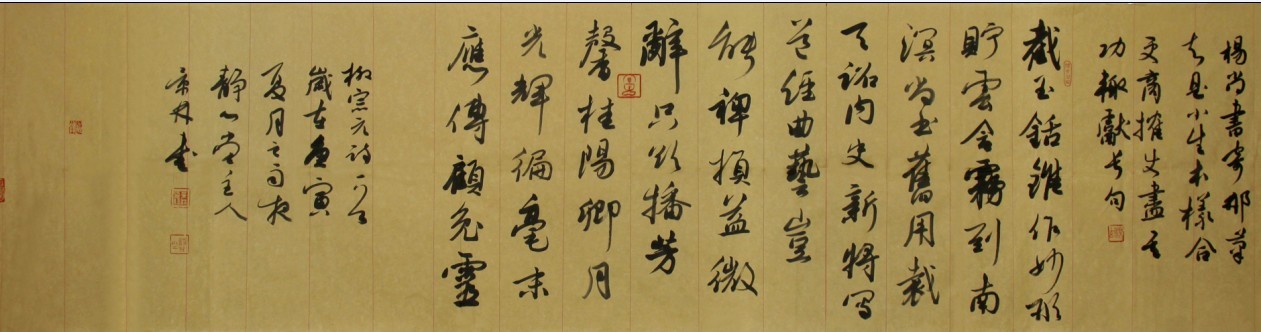 楊尚書寄郴筆
知是小生本樣令
更商搉使盡其
功輒獻長句
截玉銛錐作妙形
貯雲含霧到南
溟尚書舊用裁
天詔內史新將寫
道經曲藝豈
能裨損益微
辭只欲播芳
馨桂陽卿月
光輝徧毫末
應傳顧兔靈
柳宗元詩一首
歲在庚寅
夏月之雨夜
靜心堂主人
書